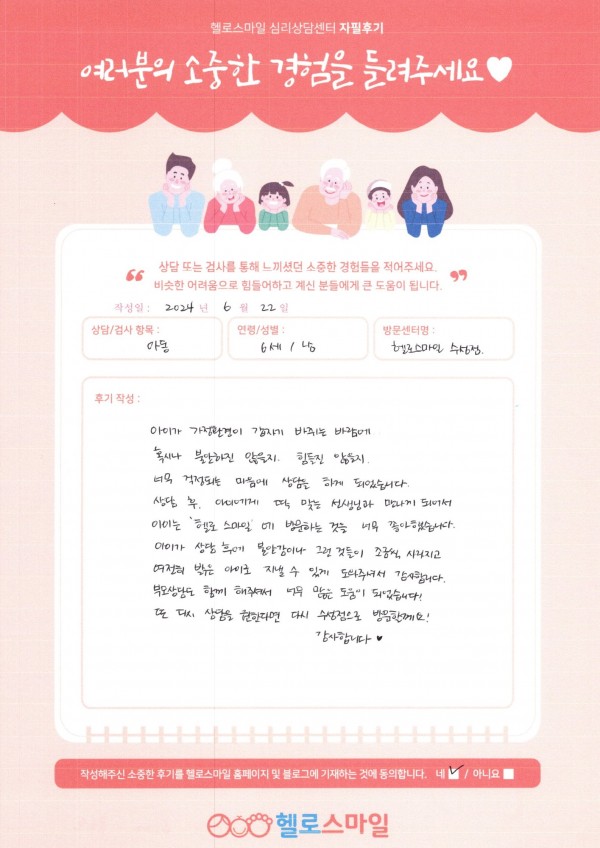 헬로스마일 심리상담센터 자필후기
여러분의 소중한 경험을 들려주세요♥
“ 상담 또는 검사를 통해 느끼셨던 소중한 경험들을 적어주세요. ”
비슷한 어려움으로 힘들어하고 계신 분들에게 큰 도움이 됩니다.
작성일 : 2024 년 6 월 22 일
상담/검사 항목 :
아동
연령/성별 :
6세 / 남
방문센터명 :
헬로스마일 수성점.
후기 작성 :
아이가 가정환경이 갑자기 바뀌는 바람에
혹시나 불안하진 않을지. 힘들진 않을지.
너무 걱정되는 마음에 상담을 하게 되었습니다.
상담 후, 아이에게 딱 맞는 선생님과 만나게 되어서
아이는 '헬로 스마일' 에 방문하는 것을 너무 좋아했습니다.
아이가 상담 후에 불안감이나 그런 것들이 조금씩 사라지고
여전히 밝은 아이로 지낼 수 있게 도와주셔서 감사합니다.
부모상담도 함께 해주셔서 너무 많은 도움이 되었습니다!
또 다시 상담을 원한다면 다시 수성점으로 방문할께요!
감사합니다 ♥
작성해주신 소중한 후기를 헬로스마일 홈페이지 및 블로그에 기재하는 것에 동의합니다. 네 ✓ / 아니요
헬로스마일